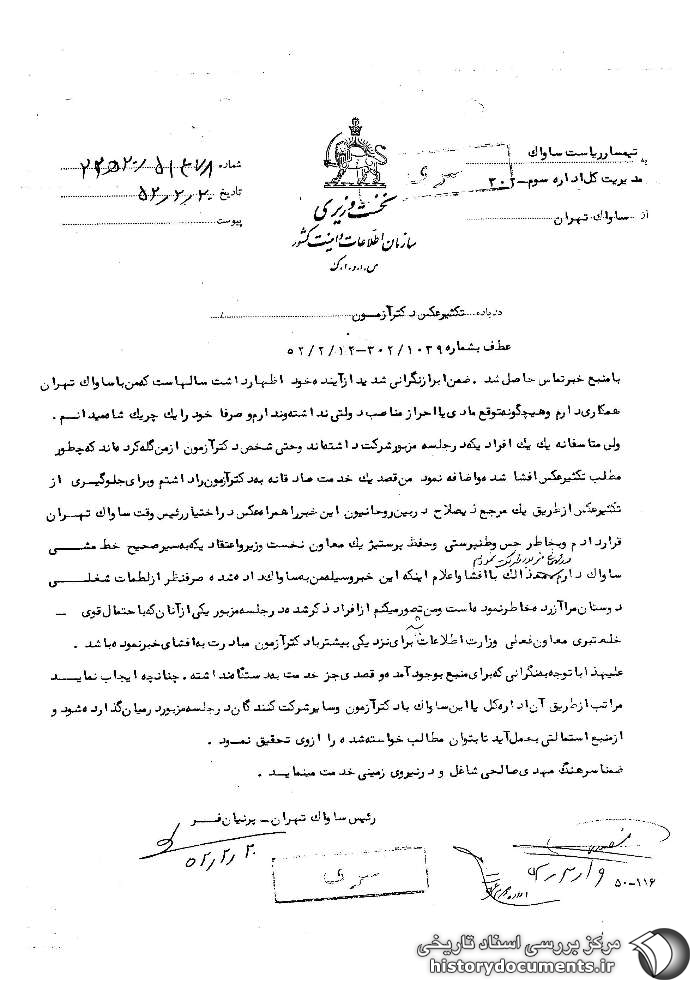 به تیمسار ریاست ساواک
مدیریت کل اداره سوم -۳۰۲
از ساواک تهران
سری
نخست وزیری
سازمان اطلاعات و امنیت کشور
س.ا.و.ا.ک
شماره
تاریخ ۵۲/۲/۲۰
پیوست
درباره تکثیر عکس دکتر آزمون
عطف بشماره ۳۰۲/۱۰۳۹-۵۲/۲/۱۲
با منبع خبر تماس حاصل شد . ضمن ابراز نگرانی شدید از آینده خود اظهار داشت سالهاست که من با ساواک تهران
همکاری دارم و هیچگونه توقع مادی یا احراز مناصب دولتی نداشته و ندارم و صرفا خود را یک چریک شاه میدانم .
ولی متاسفانه یک یک افرادیکه در جلسه مزبور شرکت داشته اند وحتی شخص دکتر آزمون از من گله کرده اند که چطور
مطلب تکثیر عکس افشا شده و اضافه نمود من قصد یک خدمت صادقانه به دکتر آزمون را داشتم و برای جلوگیری از
تکثیر عکس از طریق یک مرجع ذیصلاح در بین روحانیون این خبر را همراه عکس در اختیار رئیس وقت ساواک تهران
قرار دادم و بخاطر حس وطنپرستی وحفظ پرستیژ یک معاون نخست وزیر و اعتقادیکه به سیر صحیح خط مشی
ساواک دارم معهذالک با افشا و اعلام اینکه این خبر وسیله من به ساواک داده شده صرفنظر از لطمات شغلی
دوستان مرا آزرده خاطر نموده است ومن تصور میکنم از افراد ذکر شده در جلسه مزبور یکی از آنان که با حتمال قوی -
خلعتبری معاون فعلی وزارت اطلاعات برای نزدیکی بیشتر با دکتر آزمون مبادرت به افشای خبر نموده باشد .
علیهذا با توجه به نگرانی که برای منبع بوجود آمده و قصدی جز خدمت به دستگاه نداشته . چنانچه ایجاب نماید
مراتب از طریق آن اداره کل یا این ساواک با دکتر آزمون و سایر شرکت کنندگان در جلسه مزبور در میان گذارده شود و
از منبع استمالتی بعمل آید تا بتوان مطالب خواسته شده را از وی تحقیق نمود .
ضمنا سرهنگ مهدی صالحی شاغل و در نیروی زمینی خدمت مینماید .
رئیس ساواک تهران - پرنیان فر
۵۲/۲/۲۰
سری
۵۰-۱۱۶
مرکز بررسی اسناد تاریخی
historydocuments.ir